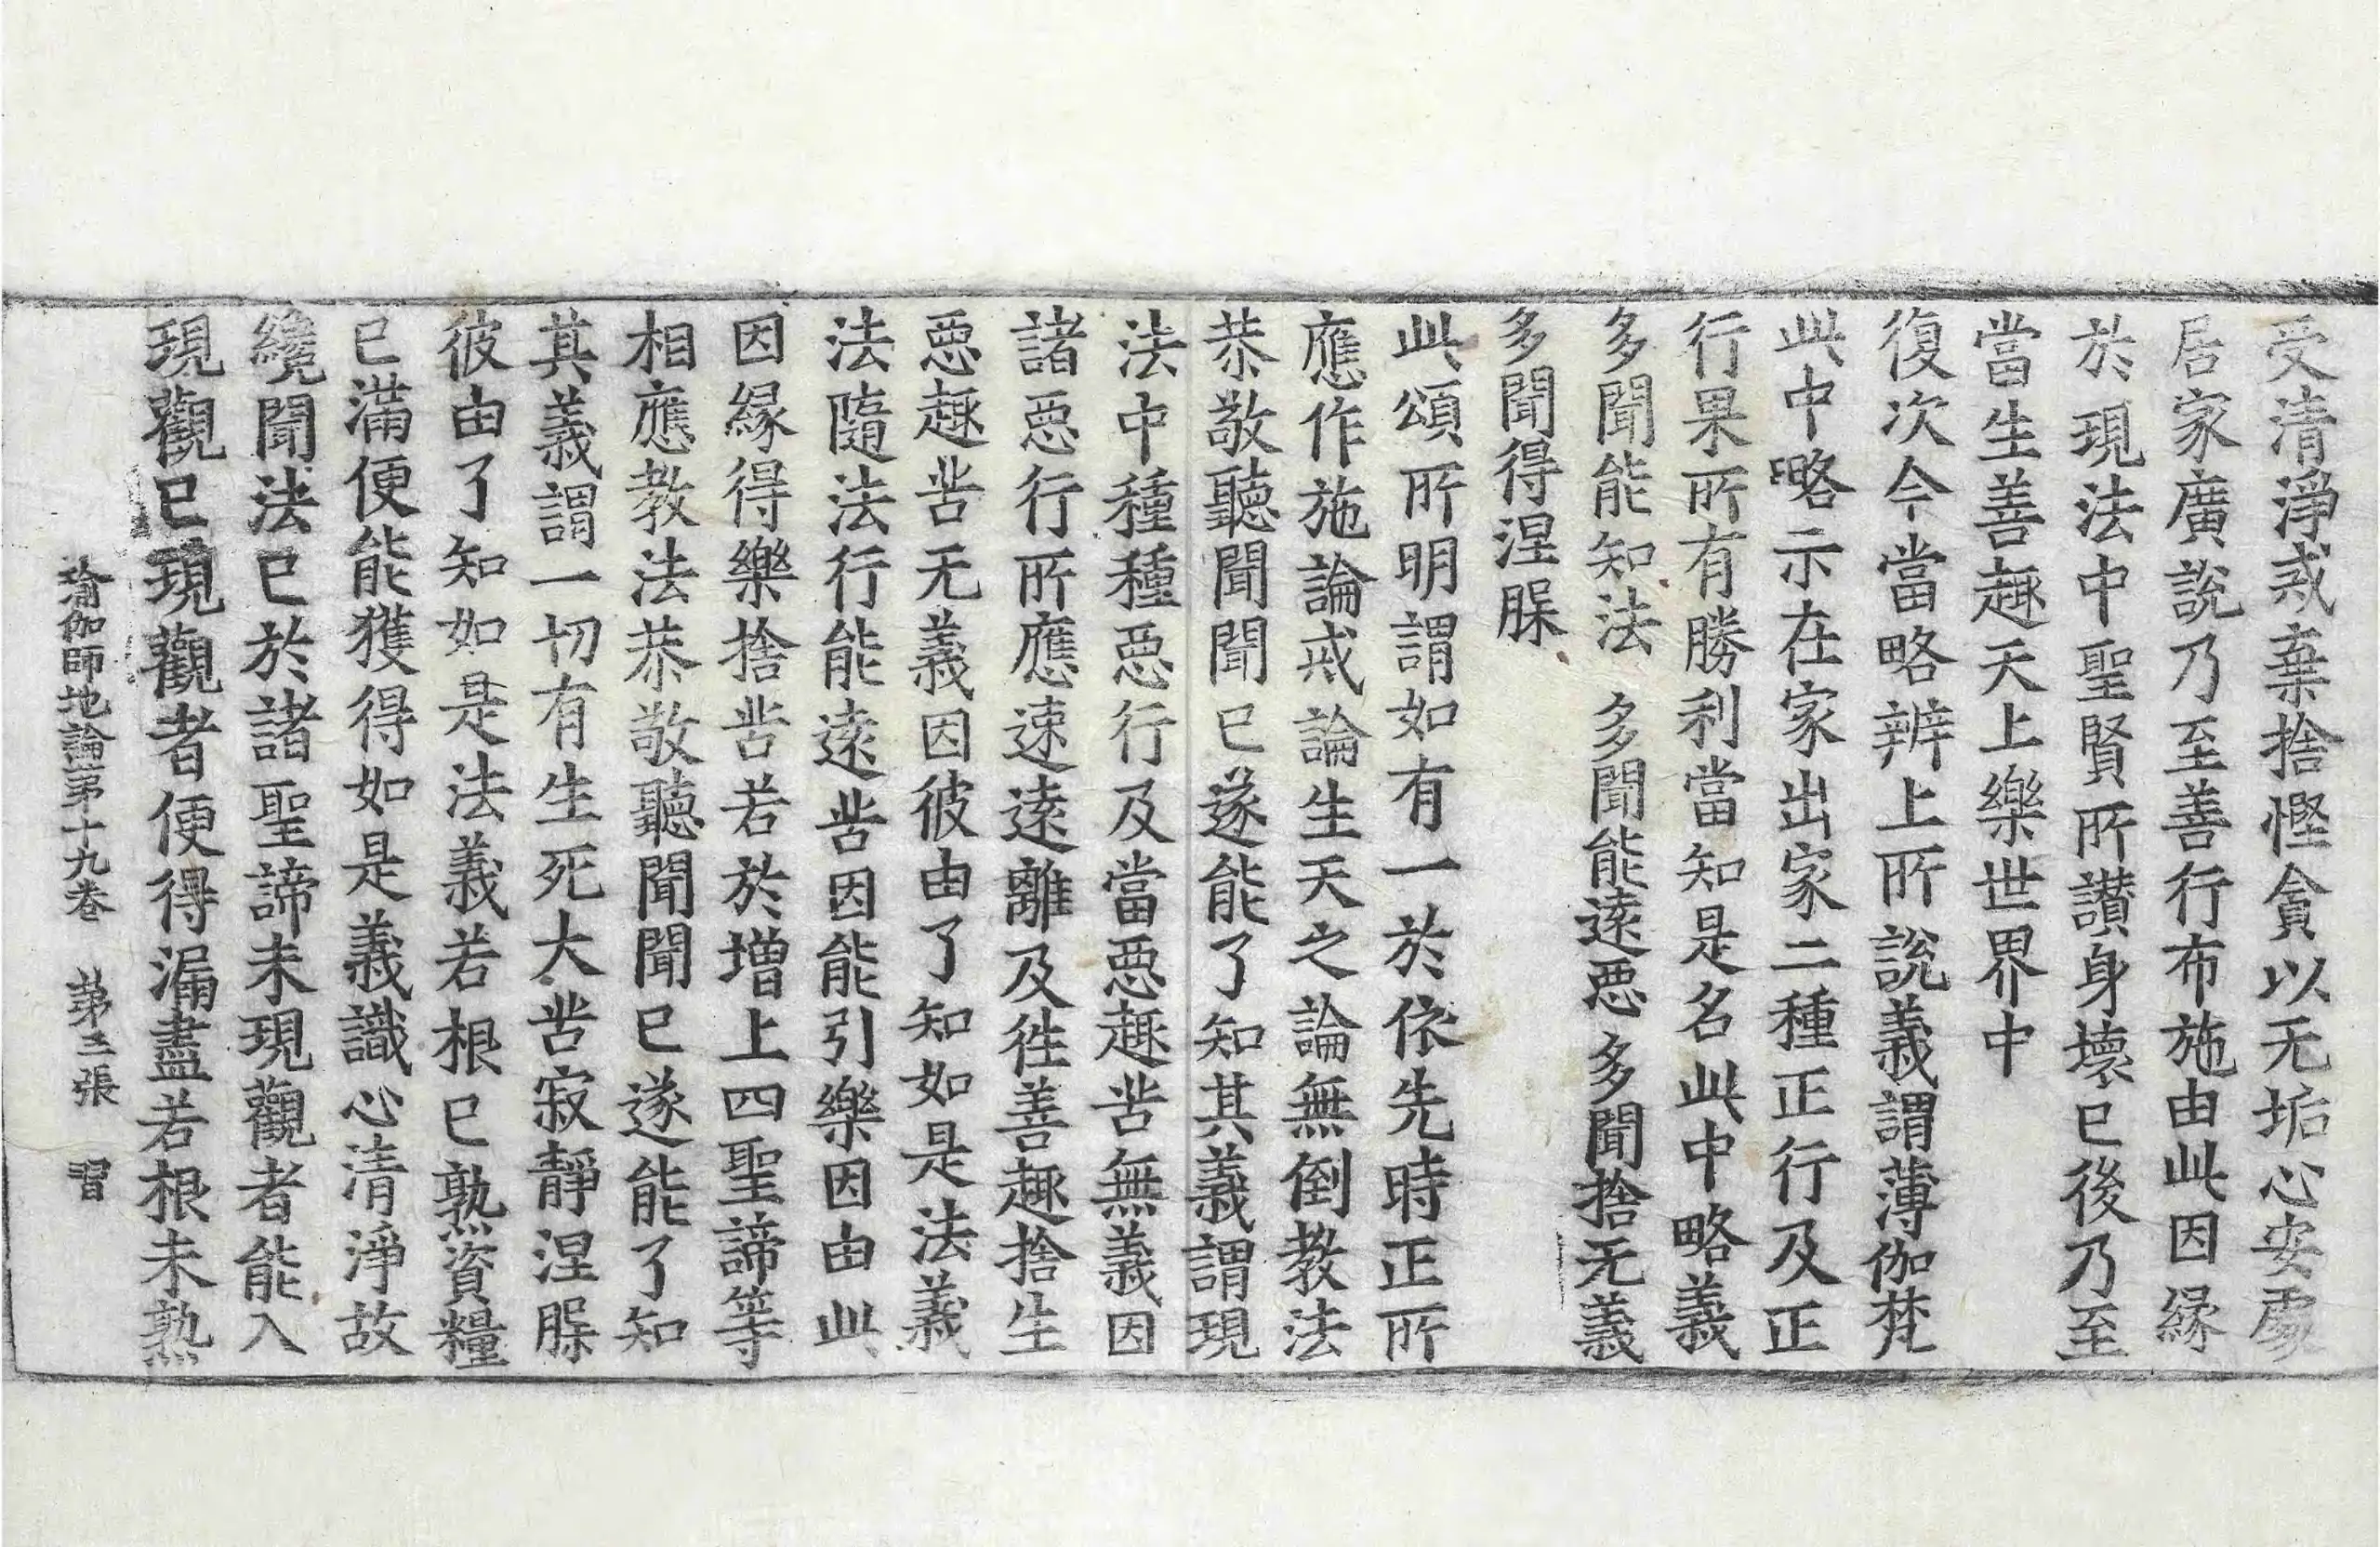 受清淨戒棄捨慳貪以无垢心安處
居家廣說乃至善行布施由此因緣
於現法中聖賢所讃身壞已後乃至
當生善趣天上樂世界中
復次今當略辨上所說義謂薄伽梵
此中略示在家出家二種正行及正
行果所有勝利當知是名此中略義
多聞能知法　多聞能逺惡　多聞捨无義
多聞得涅槃
此頌所明謂如有一於依先時正所
應作施論戒論生天之論無倒教法
恭敬聽聞聞已遂能了知其義謂現
法中種種惡行及當惡趣苦無義因
諸惡行所應速逺離及徃善趣捨生
惡趣苦无義因彼由了知如是法義
法隨法行能逺苦因能引樂因由此
因緣得樂捨苦若於增上四聖諦等
相應教法恭敬聽聞聞已遂能了知
其義謂一切有生死大苦寂靜涅槃
彼由了知如是法義若根已熟資糧
已滿便能獲得如是義識心清淨故
纔聞法已於諸聖諦未現觀者能入
現觀已現觀者便得漏盡若根未熟
瑜伽師地論第十九卷　第三張　習